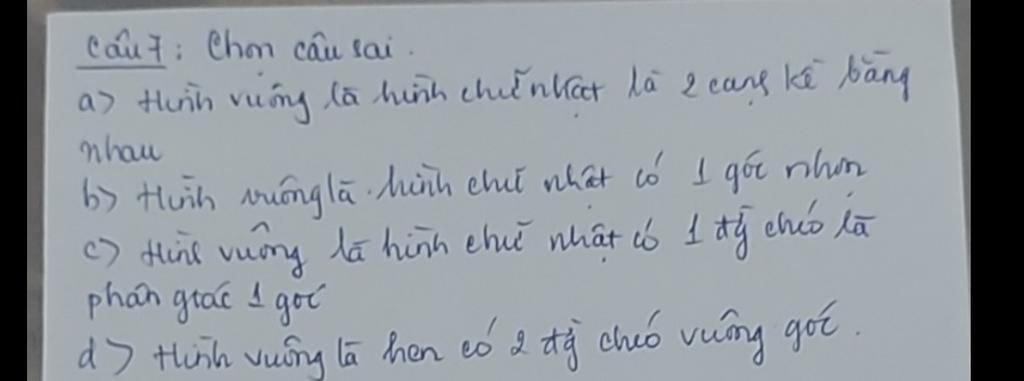 Câu 7: Chọn câu sai.
a> Hình vuông là hình chữ nhật là 2 cạnh kề bằng
nhau
b> Hình vuông là hình chữ nhật có 1 góc nhọn
c> Hình vuông là hình chữ nhật có 1 đg chéo là
phân giác 1 góc
d> Hình vuông là hcn có 2 đg chéo vuông góc.